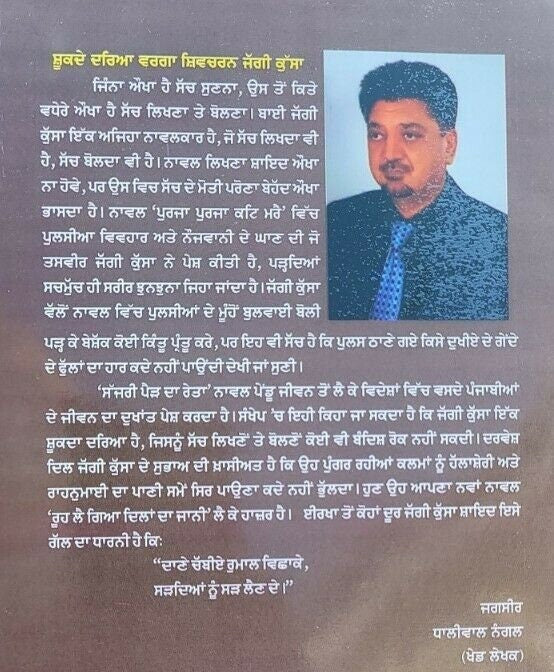 ਸ਼ੂਕਦੇ ਦਰਿਆ ਵਰਗਾ ਸ਼ਿਵਚਰਨ ਜੱਗੀ ਕੁੱਸਾ
ਜਿੰਨਾ ਔਖਾ ਹੈ ਸੱਚ ਸੁਣਨਾ, ਉਸ ਤੋਂ ਕਿਤੇ
ਵਧੇਰੇ ਔਖਾ ਹੈ ਸੱਚ ਲਿਖਣਾ ਤੇ ਬੋਲਣਾ। ਬਾਈ ਜੱਗੀ
ਕੁੱਸਾ ਇੱਕ ਅਜਿਹਾ ਨਾਵਲਕਾਰ ਹੈ, ਜੋ ਸੱਚ ਲਿਖਦਾ ਵੀ
ਹੈ, ਸੱਚ ਬੋਲਦਾ ਵੀ ਹੈ। ਨਾਵਲ ਲਿਖਣਾ ਸ਼ਾਇਦ ਔਖਾ
ਨਾ ਹੋਵੇ, ਪਰ ਉਸ ਵਿਚ ਸੱਚ ਦੇ ਮੋਤੀ ਪਰੋਣਾ ਬੇਹੱਦ ਔਖਾ
ਭਾਸਦਾ ਹੈ। ਨਾਵਲ 'ਪੁਰਜਾ ਪੁਰਜਾ ਕਟਿ ਮਰੈ' ਵਿੱਚ
ਪੁਲਸੀਆ ਵਿਵਹਾਰ ਅਤੇ ਨੌਜਵਾਨੀ ਦੇ ਘਾਣ ਦੀ ਜੋ
ਤਸਵੀਰ ਜੱਗੀ ਕੁੱਸਾ ਨੇ ਪੇਸ਼ ਕੀਤੀ ਹੈ, ਪੜ੍ਹਦਿਆਂ
ਸਚਮੁੱਚ ਹੀ ਸਰੀਰ ਝੁਨਝੁਨਾ ਜਿਹਾ ਜਾਂਦਾ ਹੈ। ਜੱਗੀ ਕੁੱਸਾ
ਵੱਲੋਂ ਨਾਵਲ ਵਿੱਚ ਪੁਲਸੀਆਂ ਦੇ ਮੂੰਹੋਂ ਬੁਲਵਾਈ ਬੋਲੀ
ਪੜ੍ਹ ਕੇ ਬੇਸ਼ੱਕ ਕੋਈ ਕਿੰਤੂ ਪ੍ਰੰਤੂ ਕਰੇ, ਪਰ ਇਹ ਵੀ ਸੱਚ ਹੈ ਕਿ ਪੁਲਸ ਠਾਣੇ ਗਏ ਕਿਸੇ ਦੁਖੀਏ ਦੇ ਗੇਂਦੇ
ਦੇ ਫੁੱਲਾਂ ਦਾ ਹਾਰ ਕਦੇ ਨਹੀਂ ਪਾਉਂਦੀ ਦੇਖੀ ਜਾਂ ਸੁਣੀ।
'ਸੱਜਰੀ ਪੈੜ ਦਾ ਰੇਤਾ' ਨਾਵਲ ਪੇਂਡੂ ਜੀਵਨ ਤੋਂ ਲੈ ਕੇ ਵਿਦੇਸ਼ਾਂ ਵਿੱਚ ਵਸਦੇ ਪੰਜਾਬੀਆਂ
ਦੇ ਜੀਵਨ ਦਾ ਦੁਖਾਂਤ ਪੇਸ਼ ਕਰਦਾ ਹੈ। ਸੰਖੇਪ 'ਚ ਇਹੀ ਕਿਹਾ ਜਾ ਸਕਦਾ ਹੈ ਕਿ ਜੱਗੀ ਕੁੱਸਾ ਇੱਕ
ਸ਼ੂਕਦਾ ਦਰਿਆ ਹੈ, ਜਿਸਨੂੰ ਸੱਚ ਲਿਖਣੋਂ ਤੇ ਬੋਲਣੋਂ ਕੋਈ ਵੀ ਬੰਦਿਸ਼ ਰੋਕ ਨਹੀਂ ਸਕਦੀ। ਦਰਵੇਸ਼
ਦਿਲ ਜੱਗੀ ਕੁੱਸਾ ਦੇ ਸੁਭਾਅ ਦੀ ਖ਼ਾਸੀਅਤ ਹੈ ਕਿ ਉਹ ਪੁੰਗਰ ਰਹੀਆਂ ਕਲਮਾਂ ਨੂੰ ਹੱਲਾਸ਼ੇਰੀ ਅਤੇ
ਰਾਹਨੁਮਾਈ ਦਾ ਪਾਣੀ ਸਮੇਂ ਸਿਰ ਪਾਉਣਾ ਕਦੇ ਨਹੀਂ ਭੁੱਲਦਾ। ਹੁਣ ਉਹ ਆਪਣਾ ਨਵਾਂ ਨਾਵਲ
'ਰੂਹ ਲੈ ਗਿਆ ਦਿਲਾਂ ਦਾ ਜਾਨੀ' ਲੈ ਕੇ ਹਾਜ਼ਰ ਹੈ। ਈਰਖਾ ਤੋਂ ਕੋਹਾਂ ਦੂਰ ਜੱਗੀ ਕੁੱਸਾ ਸ਼ਾਇਦ ਇਸੇ
ਗੱਲ ਦਾ ਧਾਰਨੀ ਹੈ ਕਿ:
"ਦਾਣੇ ਚੱਬੀਏ ਰੁਮਾਲ ਵਿਛਾਕੇ,
ਸੜਦਿਆਂ ਨੂੰ ਸੜ ਲੈਣ ਦੇ।"
ਜਗਸੀਰ
ਧਾਲੀਵਾਲ ਨੰਗਲ
(ਖੇਡ ਲੇਖਕ)